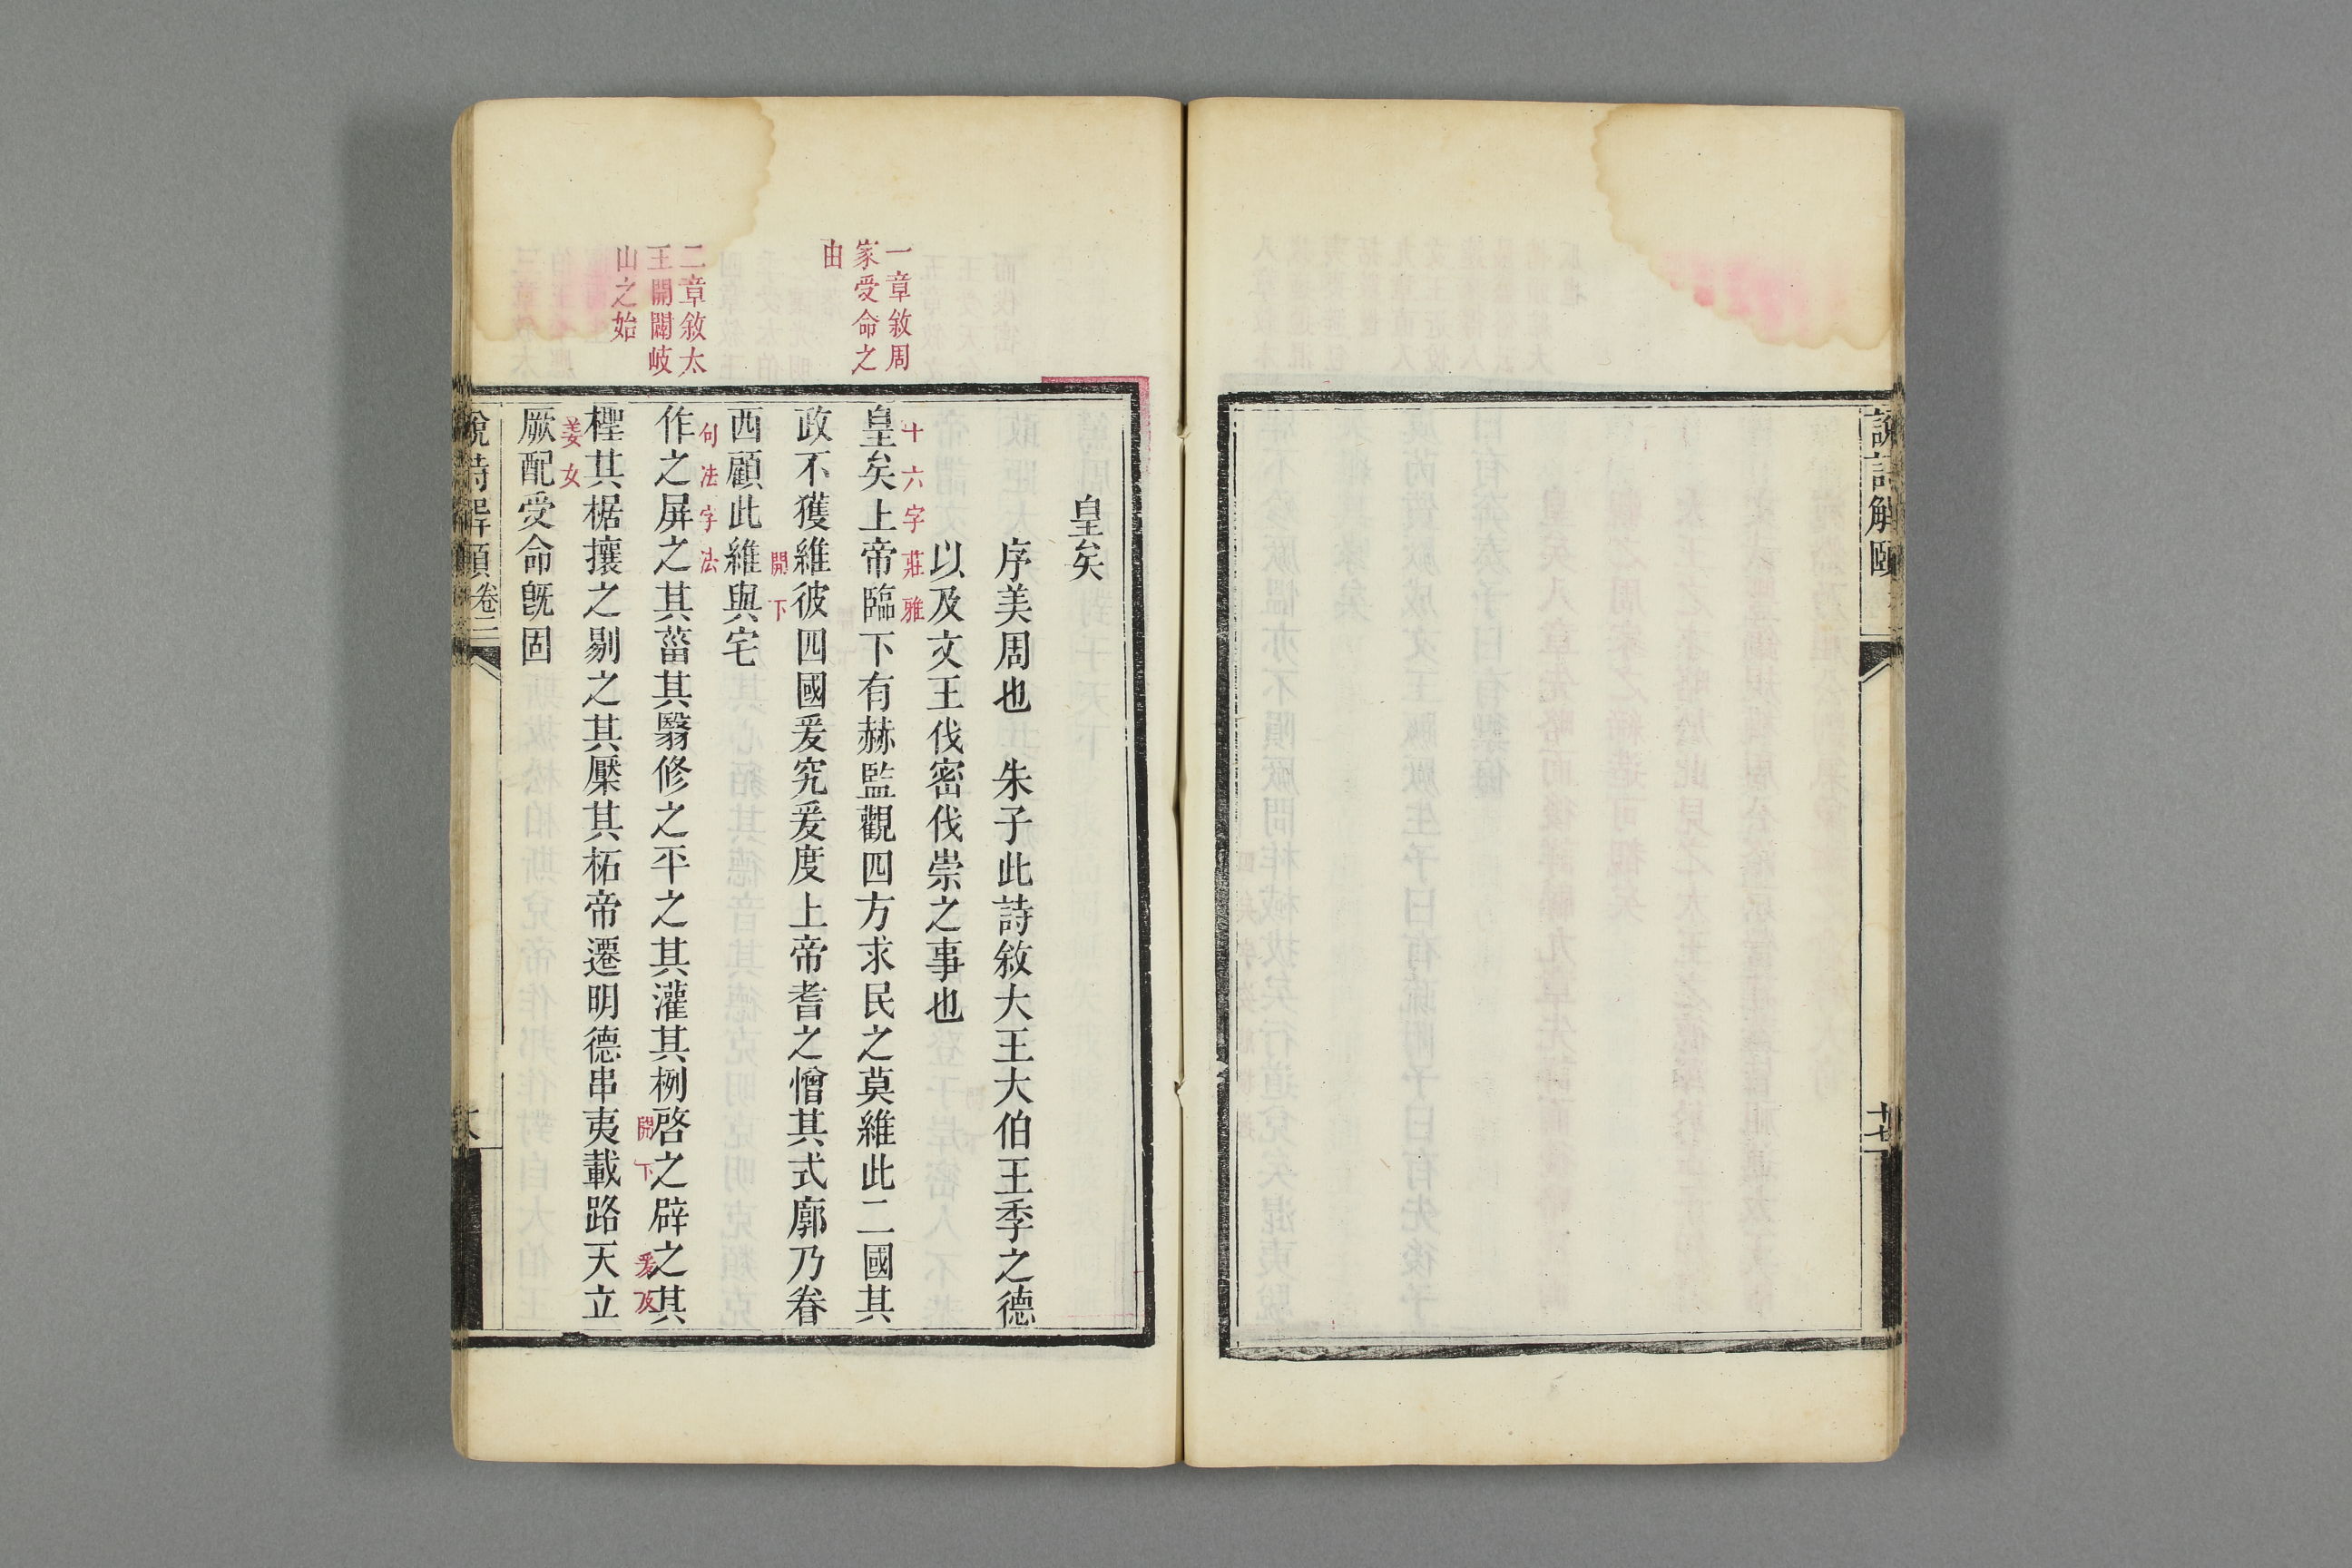 說詩解頤
十七
皇矣
序美周也 朱子此詩敘大王大伯王季之德
以及文王伐密伐崇之事也
一章敘周
家受命之
由
十六字莊雅
皇矣上帝臨下有赫監觀四方求民之莫維此二國其
政不獲維彼四國爰究爰度上帝耆之憎其式廓乃眷
開下
西顧此維與宅
二章敘太
王開闢岐
山之始
句法字法
作之屏之其菑其翳修之平之其灌其栵啓之辟之其
開下
爰及
檉其椐攘之剔之其檿其柘帝遷明德串夷載路天立
姜女
厥配受命旣固
說詩解頤 卷二